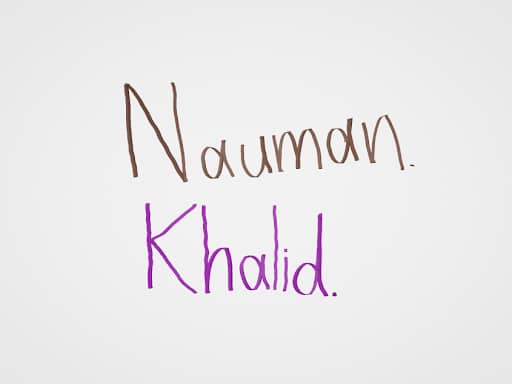 Nauman.
Khalid.